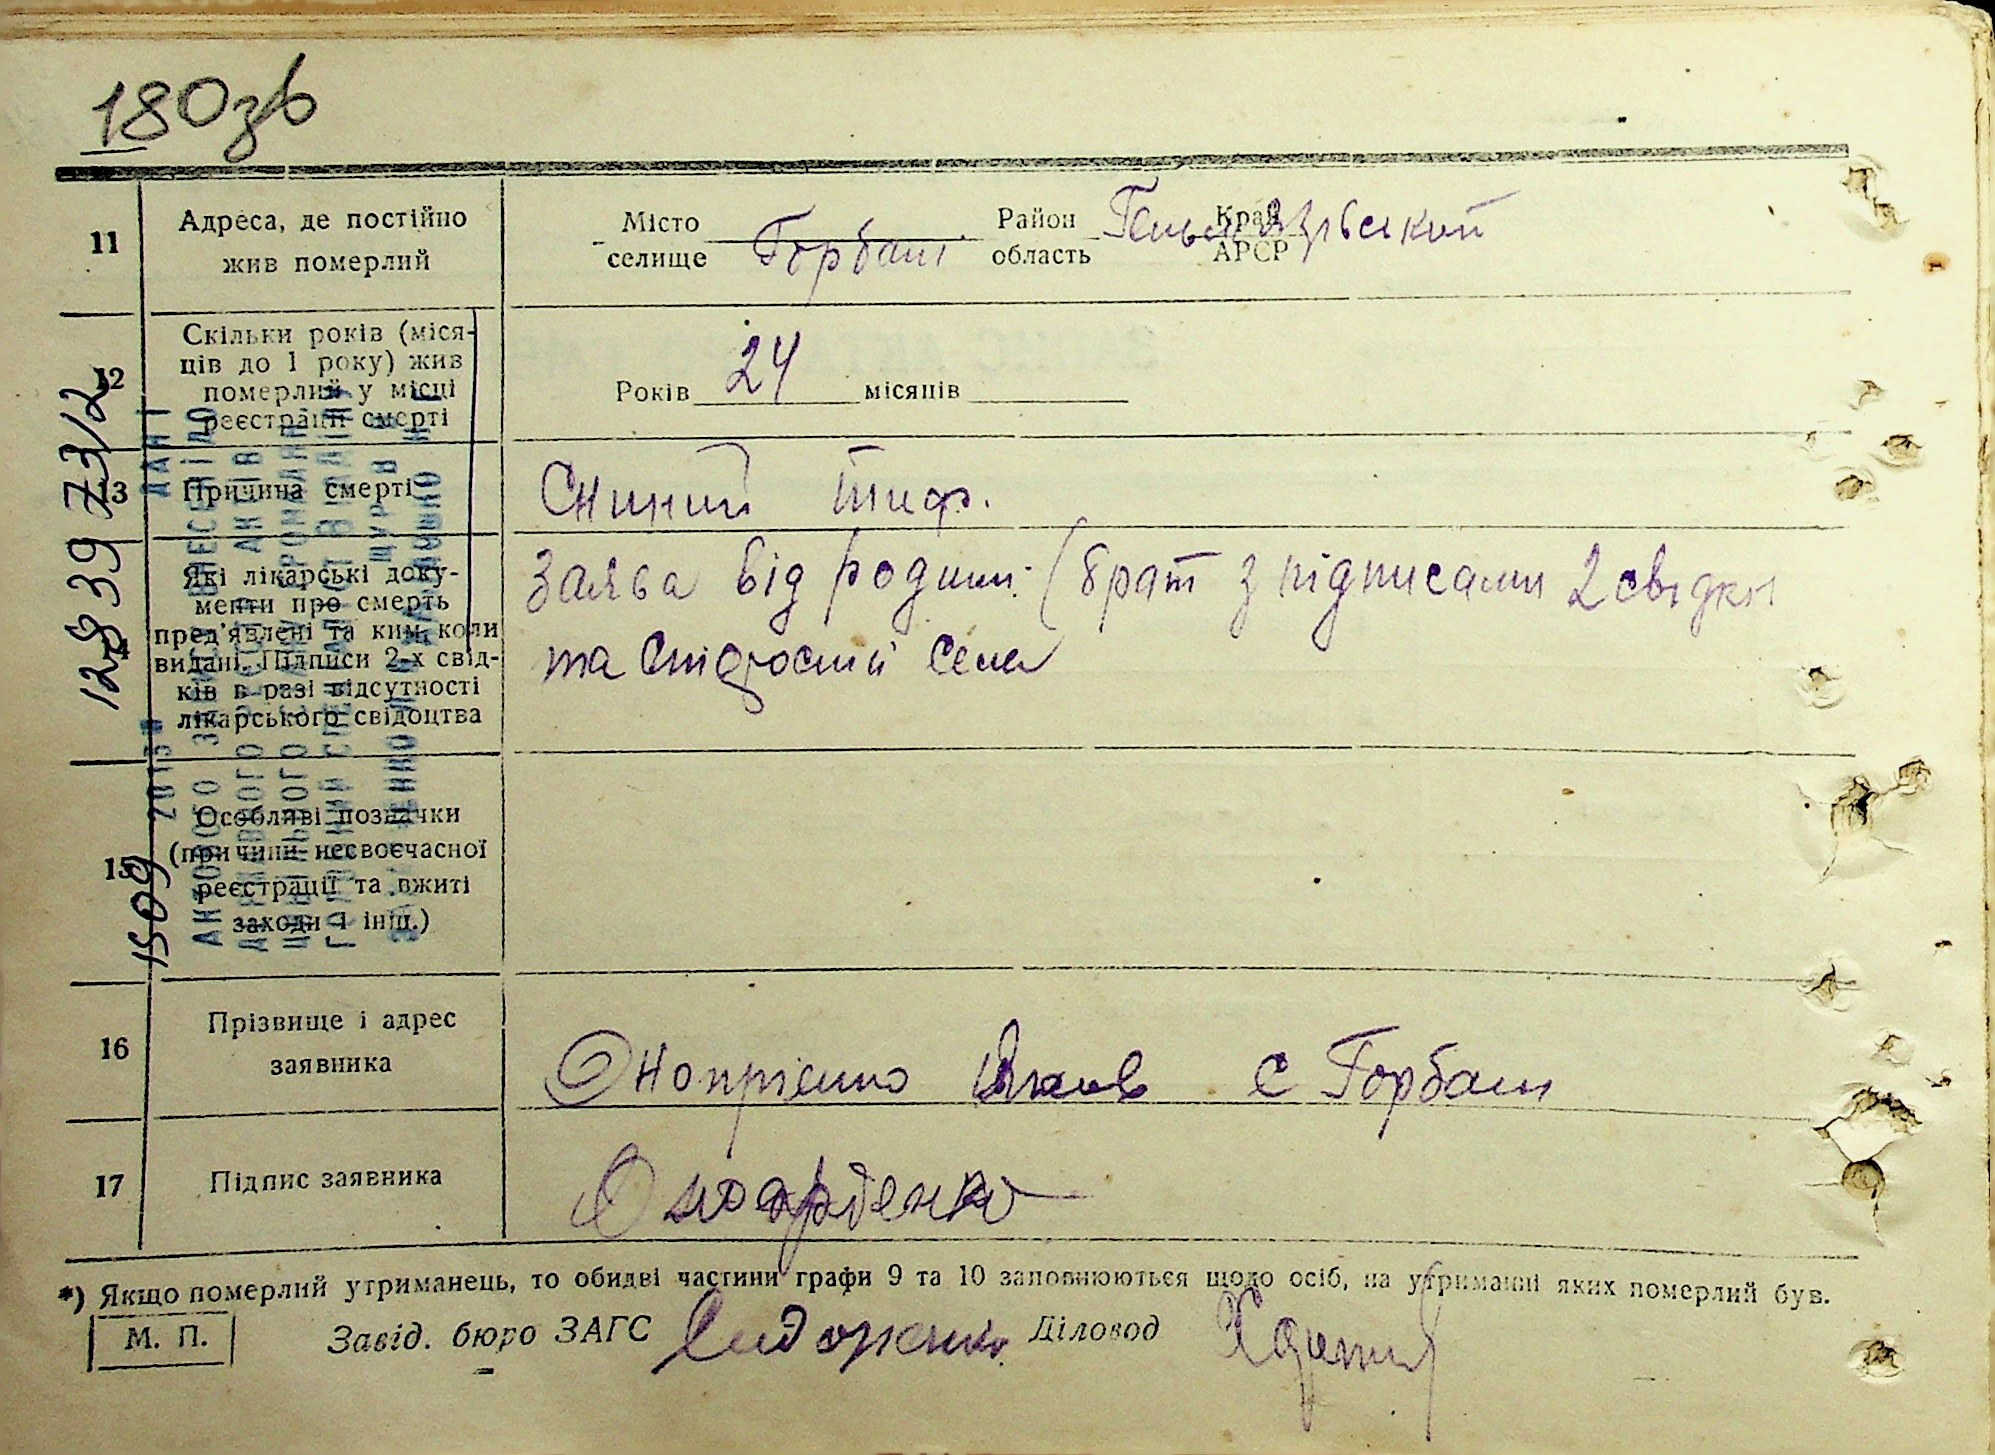 180зв
11
Адреса, де постійно
жив померлий
Місто
селище
Горбані
Район
область
Гельмязівський
Край
АРСР
12
Скільки років (міся-
ців до 1 року) жив
померлий у місці
реєстрації смерті
Років 24 місяців
13
Причина смерті
Сипний тиф.
Які лікарські доку-
менти про смерть
пред'явлені та ким, коли
видані. Підписи 2-х свід-
ків в разі відсутності
лікарського свідоцтва
Заява від родини (брат з підписами 2 свідки
та сільради села
15
Особливі позначки
(причини несвоєчасної
реєстрації та вжиті
заходи і інш.)
16
Прізвище і адрес
заявника
Онопрієнко Яков с Горбані
17
Підпис заявника
*) Якщо померлий утриманець, то обидві частини графи 9 та 10 заповнюються щодо осіб, на утриманні яких померлий був.
М. П.
Завід. бюро ЗАГС Сидоренко Діловод